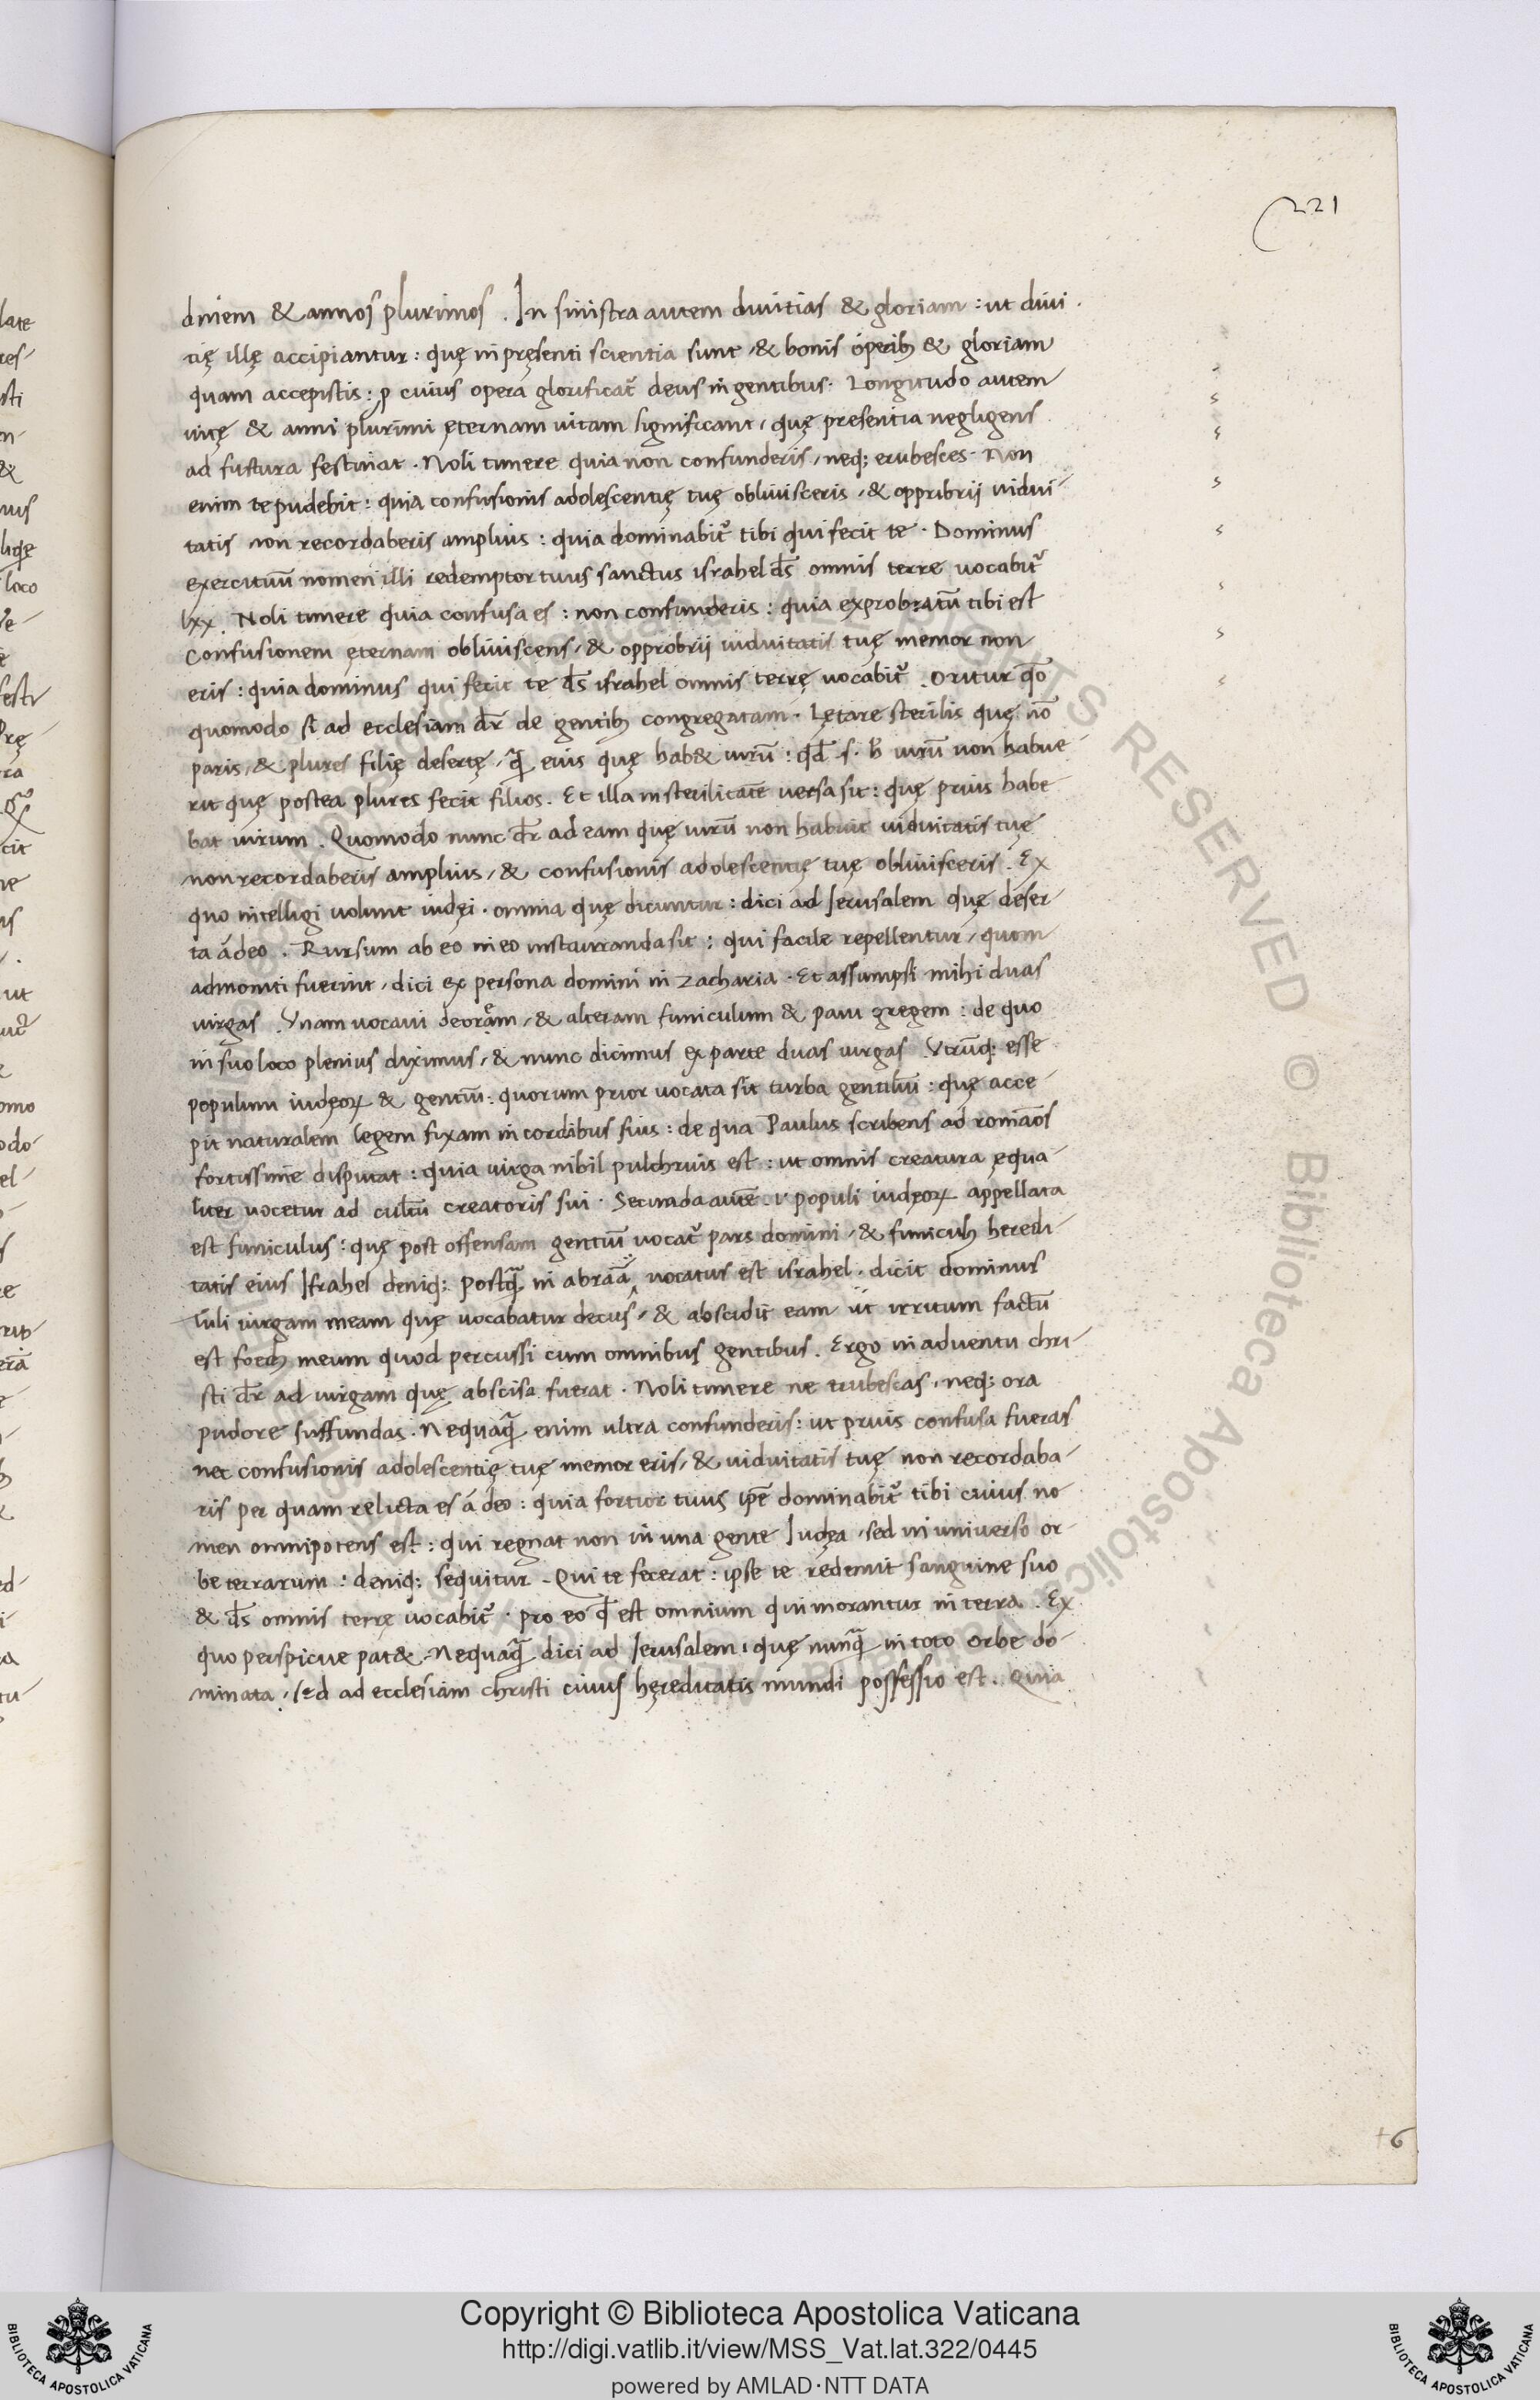 221
dinem & annos plurimos . In sinistra autem divitias & gloriam : ut divi
tię illę accipiantur : quę in pręsenti scientia sunt , & bonis operibꝫ & gloriam
quam accepistis : ꝑ cuius opera glorificat᷑ deus in gentibus . Longitudo autem
vitę & anni plurimi ęternam vitam significant , quę presentia negligens
ad futura festinat . Noli timere quia non confunderis , neqꝫ erubesces . Non
enim te pudebit : quia confusionis adolescentię tuę oblivisceris , & oppribrij vidui
tatis non recordaberis amplius : quia dominabit᷑ tibi qui fecit te . Dominus
exercituū nomen illi redemptor tuus sanctus israhel d̄s omnis terre vocabit᷑
lxx . Noli timere quia confusa es : non confunderis : quia exprobratū tibi est
Confusionem ęternam obliviscens , & opprobrij viduitatis tuę memor non
eris : quia dominus qui fecit te d̄s israhel omnis terrę vocabit᷑ . Oritur q̄o
quomodo si ad ecclesiam dr̄ de gentibꝫ congregatam . Lętare sterilis quę nō
paris , & plures filię desertę , q̄ꝫ eius quę hab& virū : qđ s . h̓ virū non habue
rit quę postea plures fecit filios . Et illa in sterilitatē versa sit : quę prius habe
bat virum . Quomodo nunc dr̄ ad eam quę virū non habuit viduitatis tuę
non recordaberis amplius , & confusionis adolescentię tuę oblivisceris . Ex
quo intelligi volunt iudęi . omnia quę dicuntur : dici ad Ierusalem quę deser
ta á deo . Rursum ab eo in eo instaurranda sit : qui facile repellentur , quom
admoniti fuerint , dici ex persona domini in Zacharia . Et assumpsi mihi duas
virgas . Vnam vocavi decorām , & alteram funiculum & pavi gregem : de quo
in suo loco plenius diximus , & nunc dicimus ex parte duas virgas Vtrūqꝫ esse
populum iudęoꝝ & gentiū : quorum prior vocata sit turba gentiliū : quę acce
pit naturalem legem fixam in cordibus suis : de qua Paulus scribens ad romāos
fortissime disputat : quia virga nihil pulchrius est : ut omnis creatura ęqua
liter vocetur ad cultū creatoris sui . Secunda autē .i. populi iudęoꝝ appellata
est funiculus : quę post offensam gentiū vocat᷑ pars domini , & funiculꝫ heredi
tatis eius Israhel deniqꝫ postq̄ꝫ in abraā vocatus est israhel . dicit dominus
Tuli virgam meam quę vocabatur decus , & abscidit eam ut irritum factū
est foedꝫ meum quod percussi cum omnibus gentibus . Ergo in adventu chri
sti dr̄ ad virgam quę abscisa fuerat . Noli timere ne erubescas , neqꝫ ora
pudore suffundas . Nequaq̄ꝫ enim ultra confunderis : ut prius confusa fueras
nec confusionis adolescentię tuę memor eris , & viduitatis tuę non recordaba
ris per quam relicta es á deo : quia fortior tuus ip̄e dominabit᷑ tibi cuius no
men omnipotens est : qui regnat non in una gente Iudęa , sed in universo or
be terrarum : deniqꝫ sequitur . Qui te fecerat : ipse te redemit sanguine suo
& d̄s omnis terrę vocabit᷑ . pro eo qđ est omnium qui morantur in terra . Ex
quo perspicue pat& . Nequaq̄ꝫ dici ad Ierusalem , quę nunq̄ꝫ in toto orbe do
minata , sed ad ecclesiam christi cuius hęreditatis mundi possessio est . Quia
Copyright © Biblioteca Apostolica Vaticana
http://digi.vatlib.it/view/MSS_Vat.lat.322/0445
powered by AMLAD·NTT DATA
BIBLIOTECA APOSTOLICA VATICANA
BIBLIOTECA APOSTOLICA VATICANA